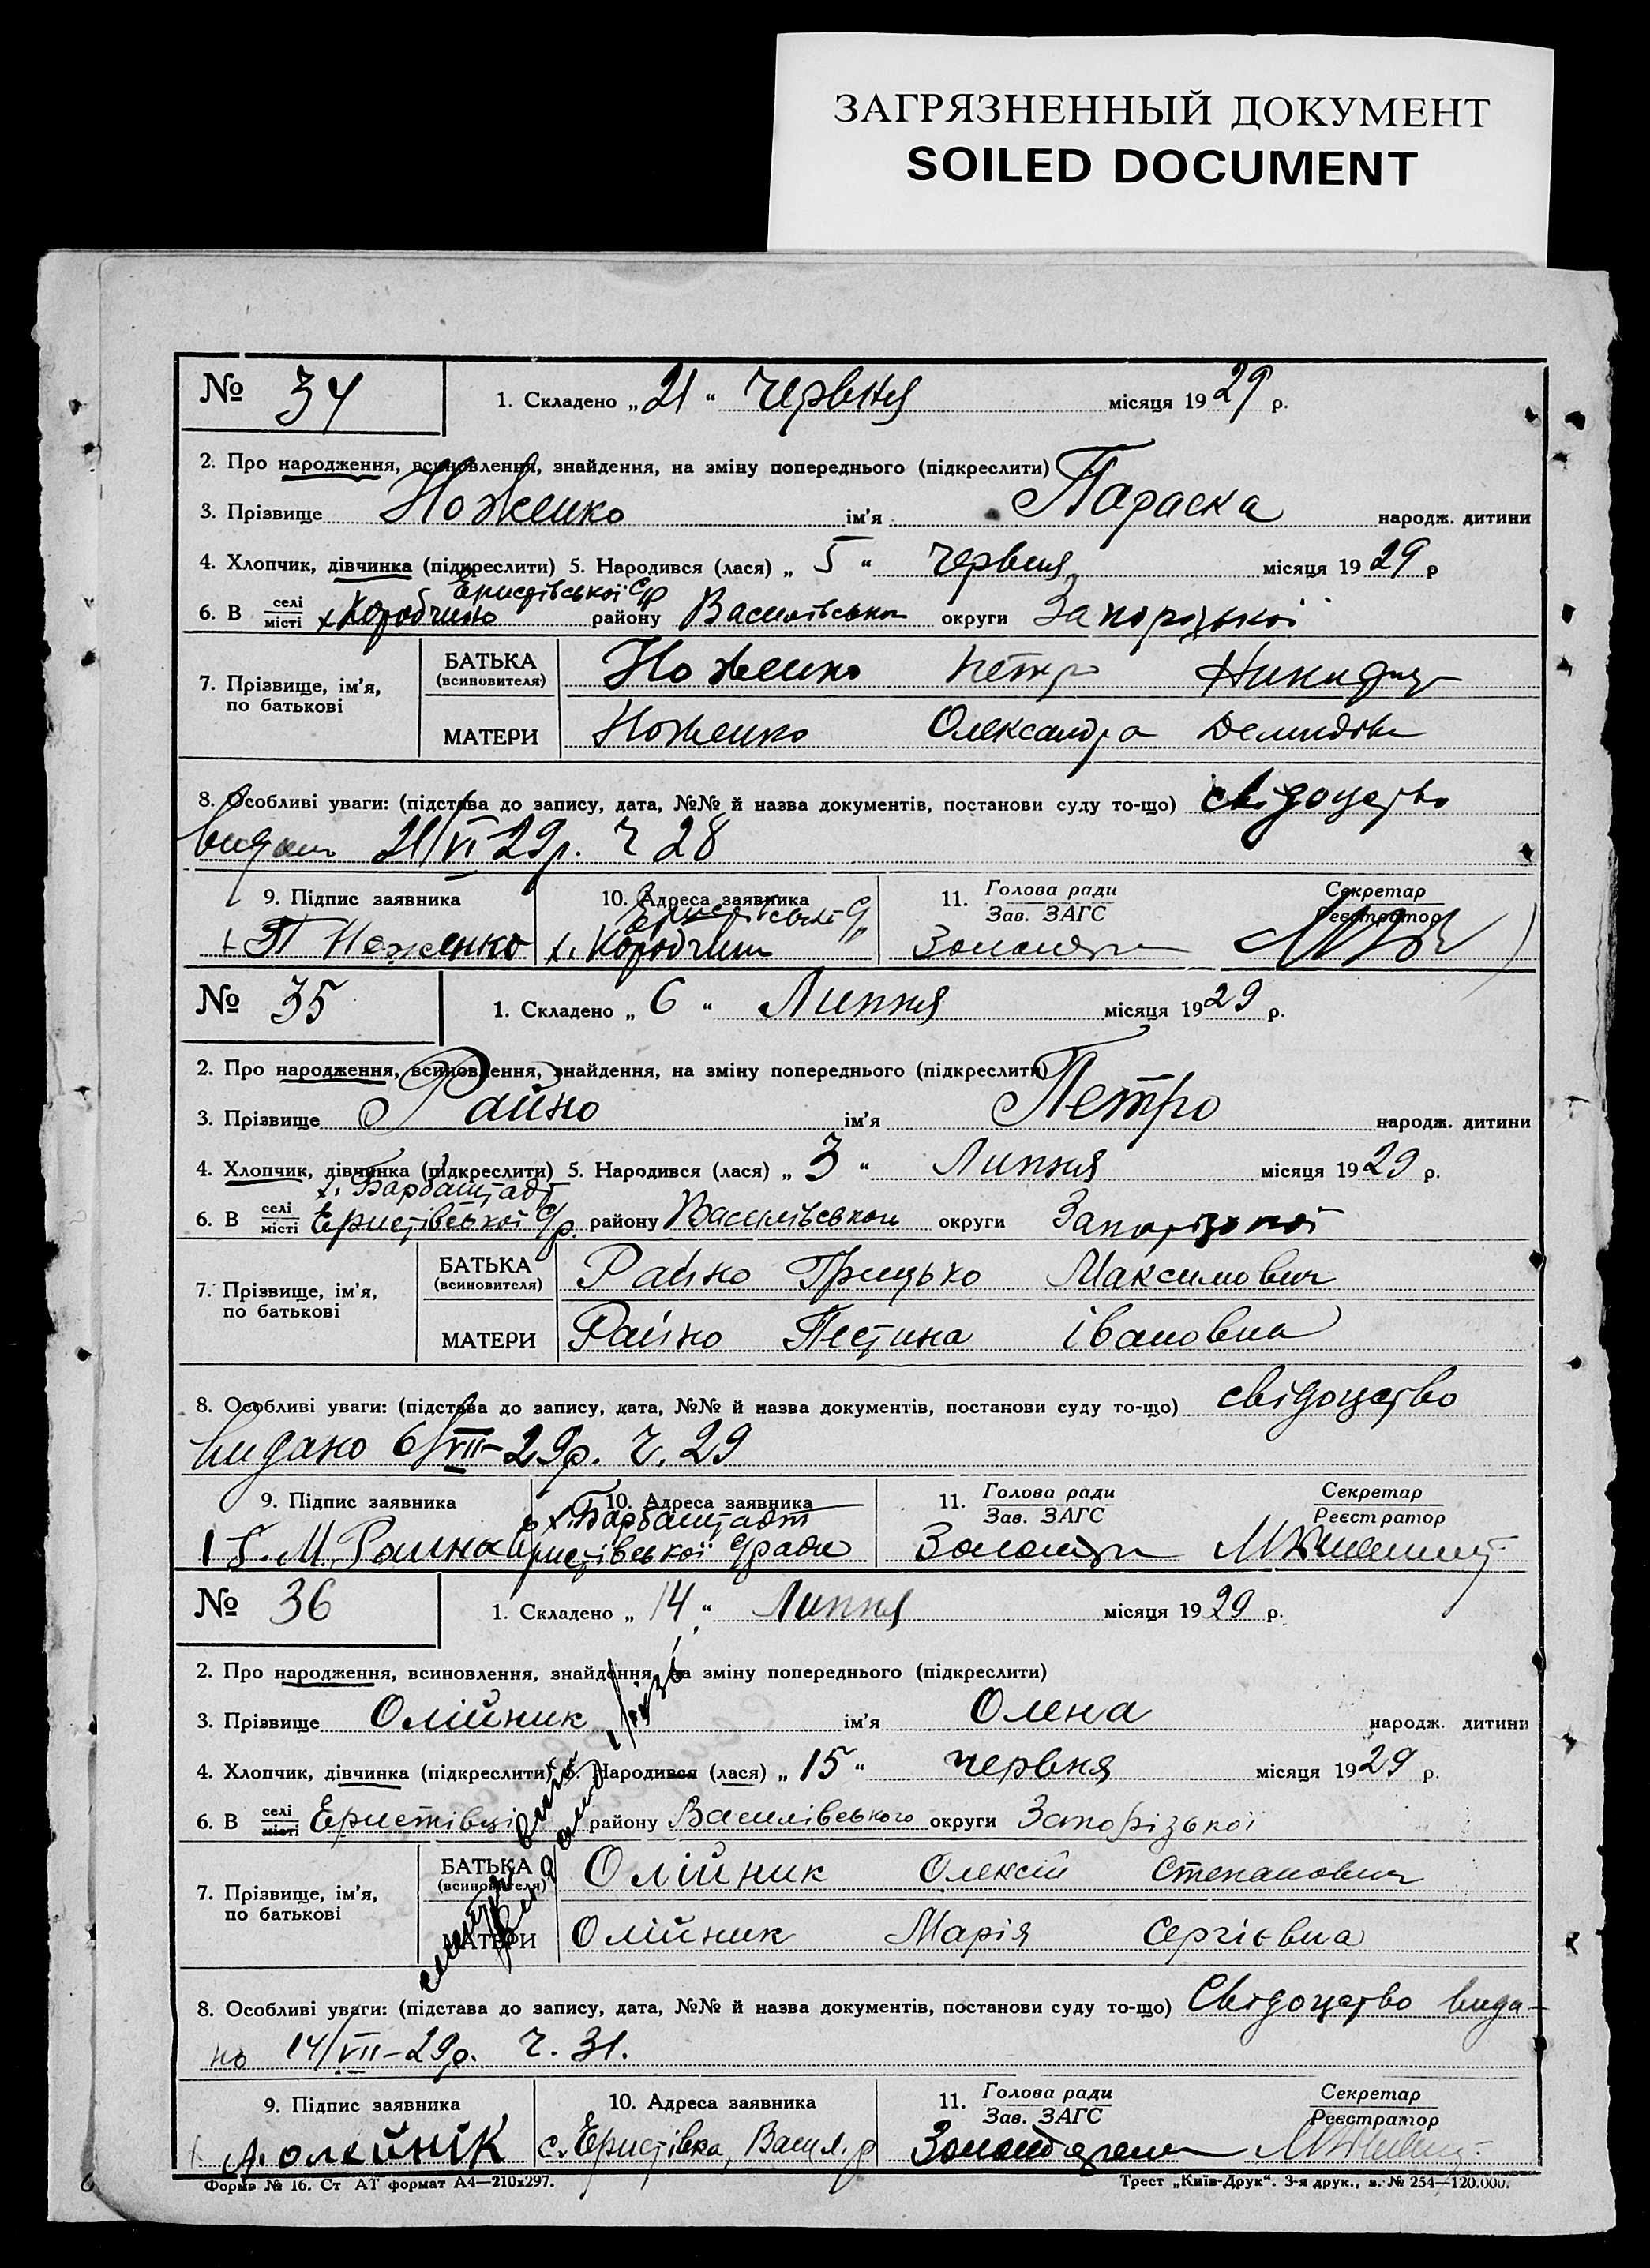 ЗАГРЯЗНЕННЫЙ ДОКУМЕНТ
SOILED DOCUMENT
№ 34 1. Складено „21“ червня місяця 1929 р.
2. Про народження, всиновлення, знайдення, на зміну попереднього (підкреслити)
3. Прізвище Ноженко ім'я Параска народж. дитини
4. Хлопчик, дівчинка (підкреслити) 5. Народився (лася) „5“ червня місяця 1929 р
Еристівської С/р
6. В селі/місті х. Коробчино району Василівського округи Запорізької
7. Прізвище, ім'я, по батькові
БАТЬКА (всиновителя) Ноженко Петро
МАТЕРИ Ноженко Олександра Демидівн
8. Особливі уваги: (підстава до запису, дата, №№ й назва документів, постанови суду то-що) свідоцтво
видано 21/VI 29р. ч 28
9. Підпис заявника 10. Адреса заявника 11. Голова ради Зав. ЗАГС Секретар Реєстратор
П Ноженко х. Коробчин
№ 35 1. Складено „6“ Липня місяця 1929 р.
2. Про народження, всиновлення, знайдення, на зміну попереднього (підкреслити)
3. Прізвище Райно ім'я Петро народж. дитини
4. Хлопчик, дівчинка (підкреслити) 5. Народився (лася) „3“ Липня місяця 1929 р.
х. Барбаштадт
6. В селі/місті Еристівської С/р. району Василівського округи Запорізької
7. Прізвище, ім'я, по батькові
БАТЬКА (всиновителя) Райно Грицько Максимович
МАТЕРИ Райно Івановна
8. Особливі уваги: (підстава до запису, дата, №№ й назва документів, постанови суду то-що) свідоцтво
видано 6/VII-29р. ч. 29
9. Підпис заявника 10. Адреса заявника 11. Голова ради Зав. ЗАГС Секретар Реєстратор
х. Барбаштадт
Еристівської С/ради
№ 36 1. Складено „14“ Липня місяця 1929 р.
2. Про народження, всиновлення, знайдення, на зміну попереднього (підкреслити)
3. Прізвище Олійник ім'я Олена народж. дитини
4. Хлопчик, дівчинка (підкреслити) 5. Народився (лася) „15“ червня місяця 1929 р.
6. В селі/місті Еристівці району Василівського округи Запорізької
7. Прізвище, ім'я, по батькові
БАТЬКА (всиновителя) Олійник Олексій Степанович
МАТЕРИ Олійник Марія Сергієвна
8. Особливі уваги: (підстава до запису, дата, №№ й назва документів, постанови суду то-що) Свідоцтво вида-
но 14/VII-29р. ч. 31.
9. Підпис заявника 10. Адреса заявника 11. Голова ради Зав. ЗАГС Секретар Реєстратор
А. олейнік с. Еристівка, Васил. р
Форма № 16. Ст АТ формат А4—210х297. Трест „Київ-Друк“. 3-я друк., з. № 254—120.000.